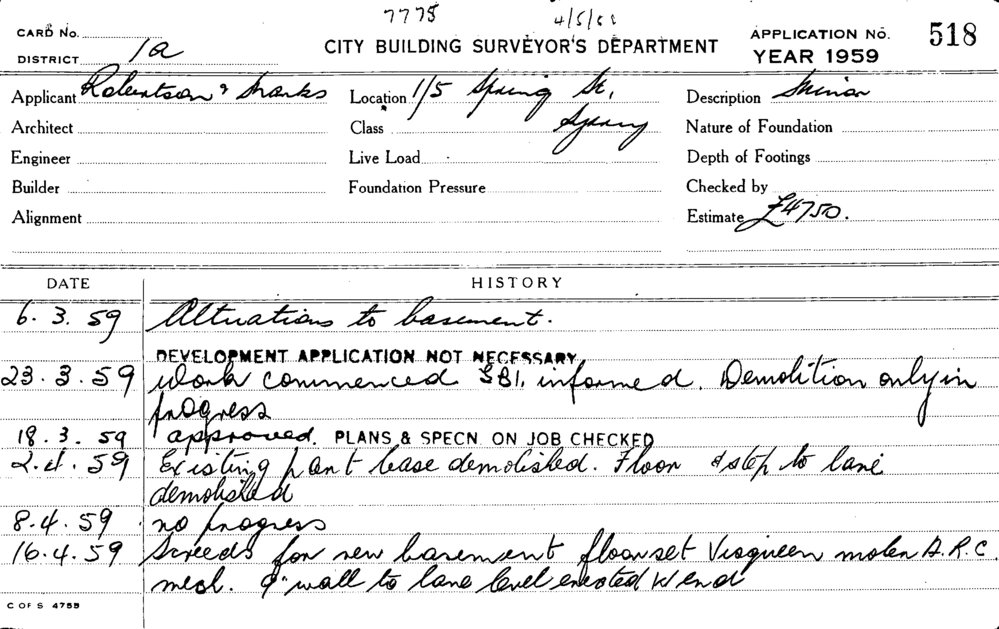 7775 4/5/61
CARD No.
CITY BUILDING SURVEYOR'S DEPARTMENT
APPLICATION No. 518
DISTRICT 1a
YEAR 1959
Applicant Robertson & Marks Location 1/5 Spring St, Description Minor
Architect Class Sydney Nature of Foundation
Engineer Live Load Depth of Footings
Builder Foundation Pressure Checked by
Alignment Estimate £4750.
DATE HISTORY
6. 3. 59 Alterations to basement.
DEVELOPMENT APPLICATION NOT NECESSARY
23. 3. 59 Work commenced informed. Demolition only in
progress
18. 3. 59 approved. PLANS & SPECN. ON JOB CHECKED
2. 4. 59 Existing plant base demolished. Floor & step to lane
demolished
8. 4. 59 no progress
16. 4. 59 Screeds for new basement floor set Visqueen A.R.C.
mesh. 9" wall to lane level erected W end
C OF S 4755